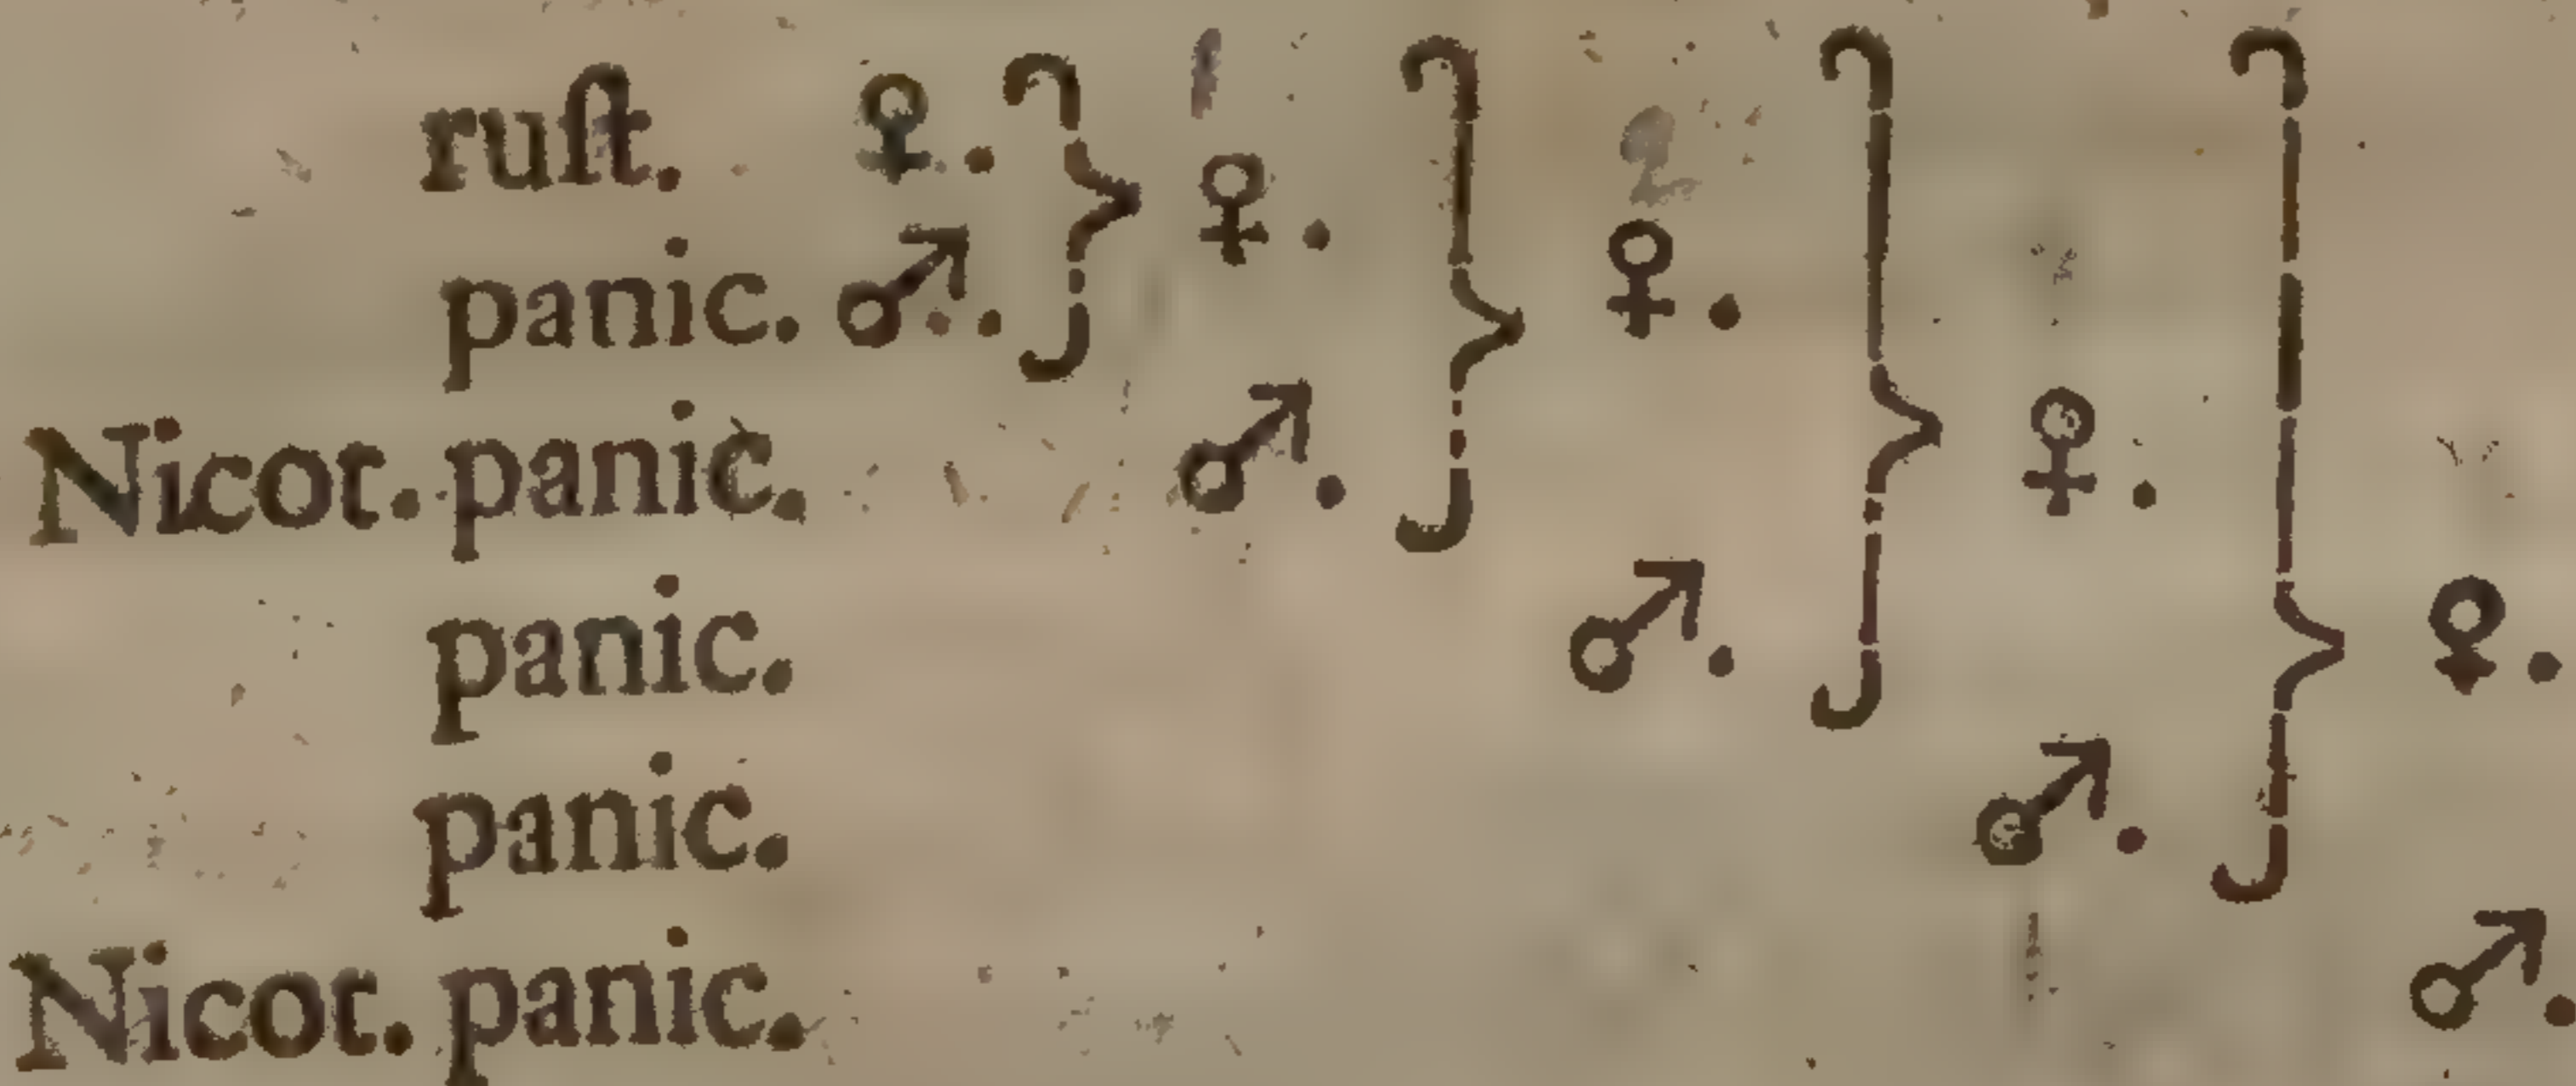 ruſt. ♀.
panic. ♂. } ♀.
Nicot. panic. ♂. } ♀.
panic. ♂. } ♀.
panic. ♂. } ♀.
Nicot. panic. ♂.